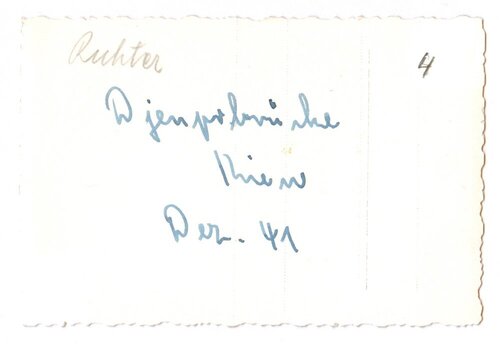 Richter
4
Djenprbrücke
Kiew
Dez. 41